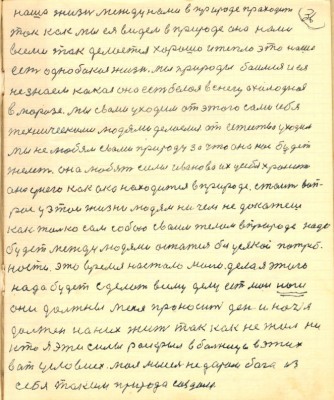 наша жизнь между нами в природе проходит
так как мы ея видем в природе она нами
всеми так делается хорошо и тепло это наше
ест однобокая жизн. мы природы боимся и ея
не знаем какая она ест белая в снегу а холодная
в морозе. мы сваим уходим от этого сами себя
техническими людями делаемся от естества уходим
мы не любим сваим природу за что она нас будет
жалет. она любит силы
как она находится в природе. стоит воп-
рос у этой жизни людям ни чем не докажеш
как только сам собою сваим телом в природе надо
будет между людями остатся би усякой потреб-
ности. это время настало мого. делая этого
надо будет сделат всему делу ест мои ноги
они должны меня проносит ден и ноч я
должен на них жит так как не жил ни
кто я эти силы раскрыл в болнице в этих
вот условиях. моя мысля не даром бога из
себя таким природа создала